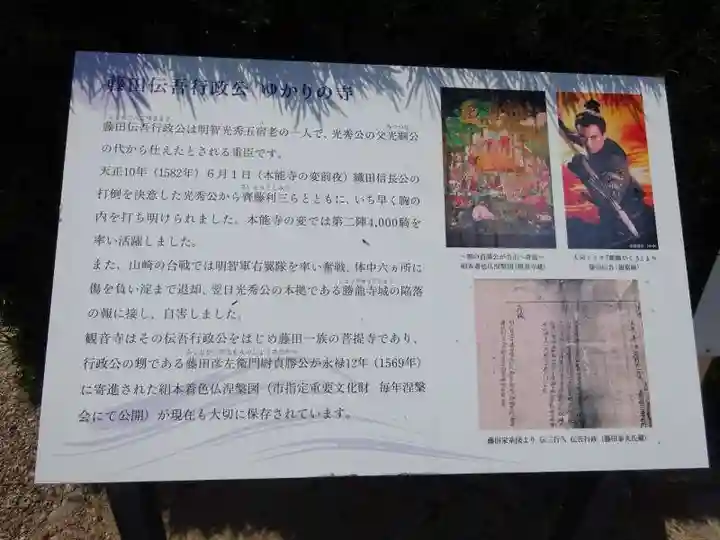 藤田伝吾行政公 ゆかりの寺
藤田伝吾行政公は明智光秀五宿老の一人で、光秀公の父光綱公
の代から仕えたとされる重臣です。
天正10年（1582年）6月1日（本能寺の変前夜）織田信長公の
打倒を決意した光秀公から齊藤利三らとともに、いち早く胸の
内を打ち明けられました。本能寺の変では第二陣4,000騎を
率い活躍しました。
また、山崎の合戦では明智軍右翼隊を率い奮戦、体中六ヵ所に
傷を負い淀まで退却、翌日光秀公の本拠である勝龍寺城の陥落
の報に接し、自害しました。
観音寺はその伝吾行政公をはじめ藤田一族の菩提寺であり、
行政公の甥である藤田彦左衛門尉貞勝公が永禄12年（1569年）
に寄進された絹本着色仏涅槃図（市指定重要文化財　毎年涅槃
会にて公開）が現在も大切に保存されています。
絹本着色仏涅槃図
藤田家系図より 伝三行久 伝吾行政